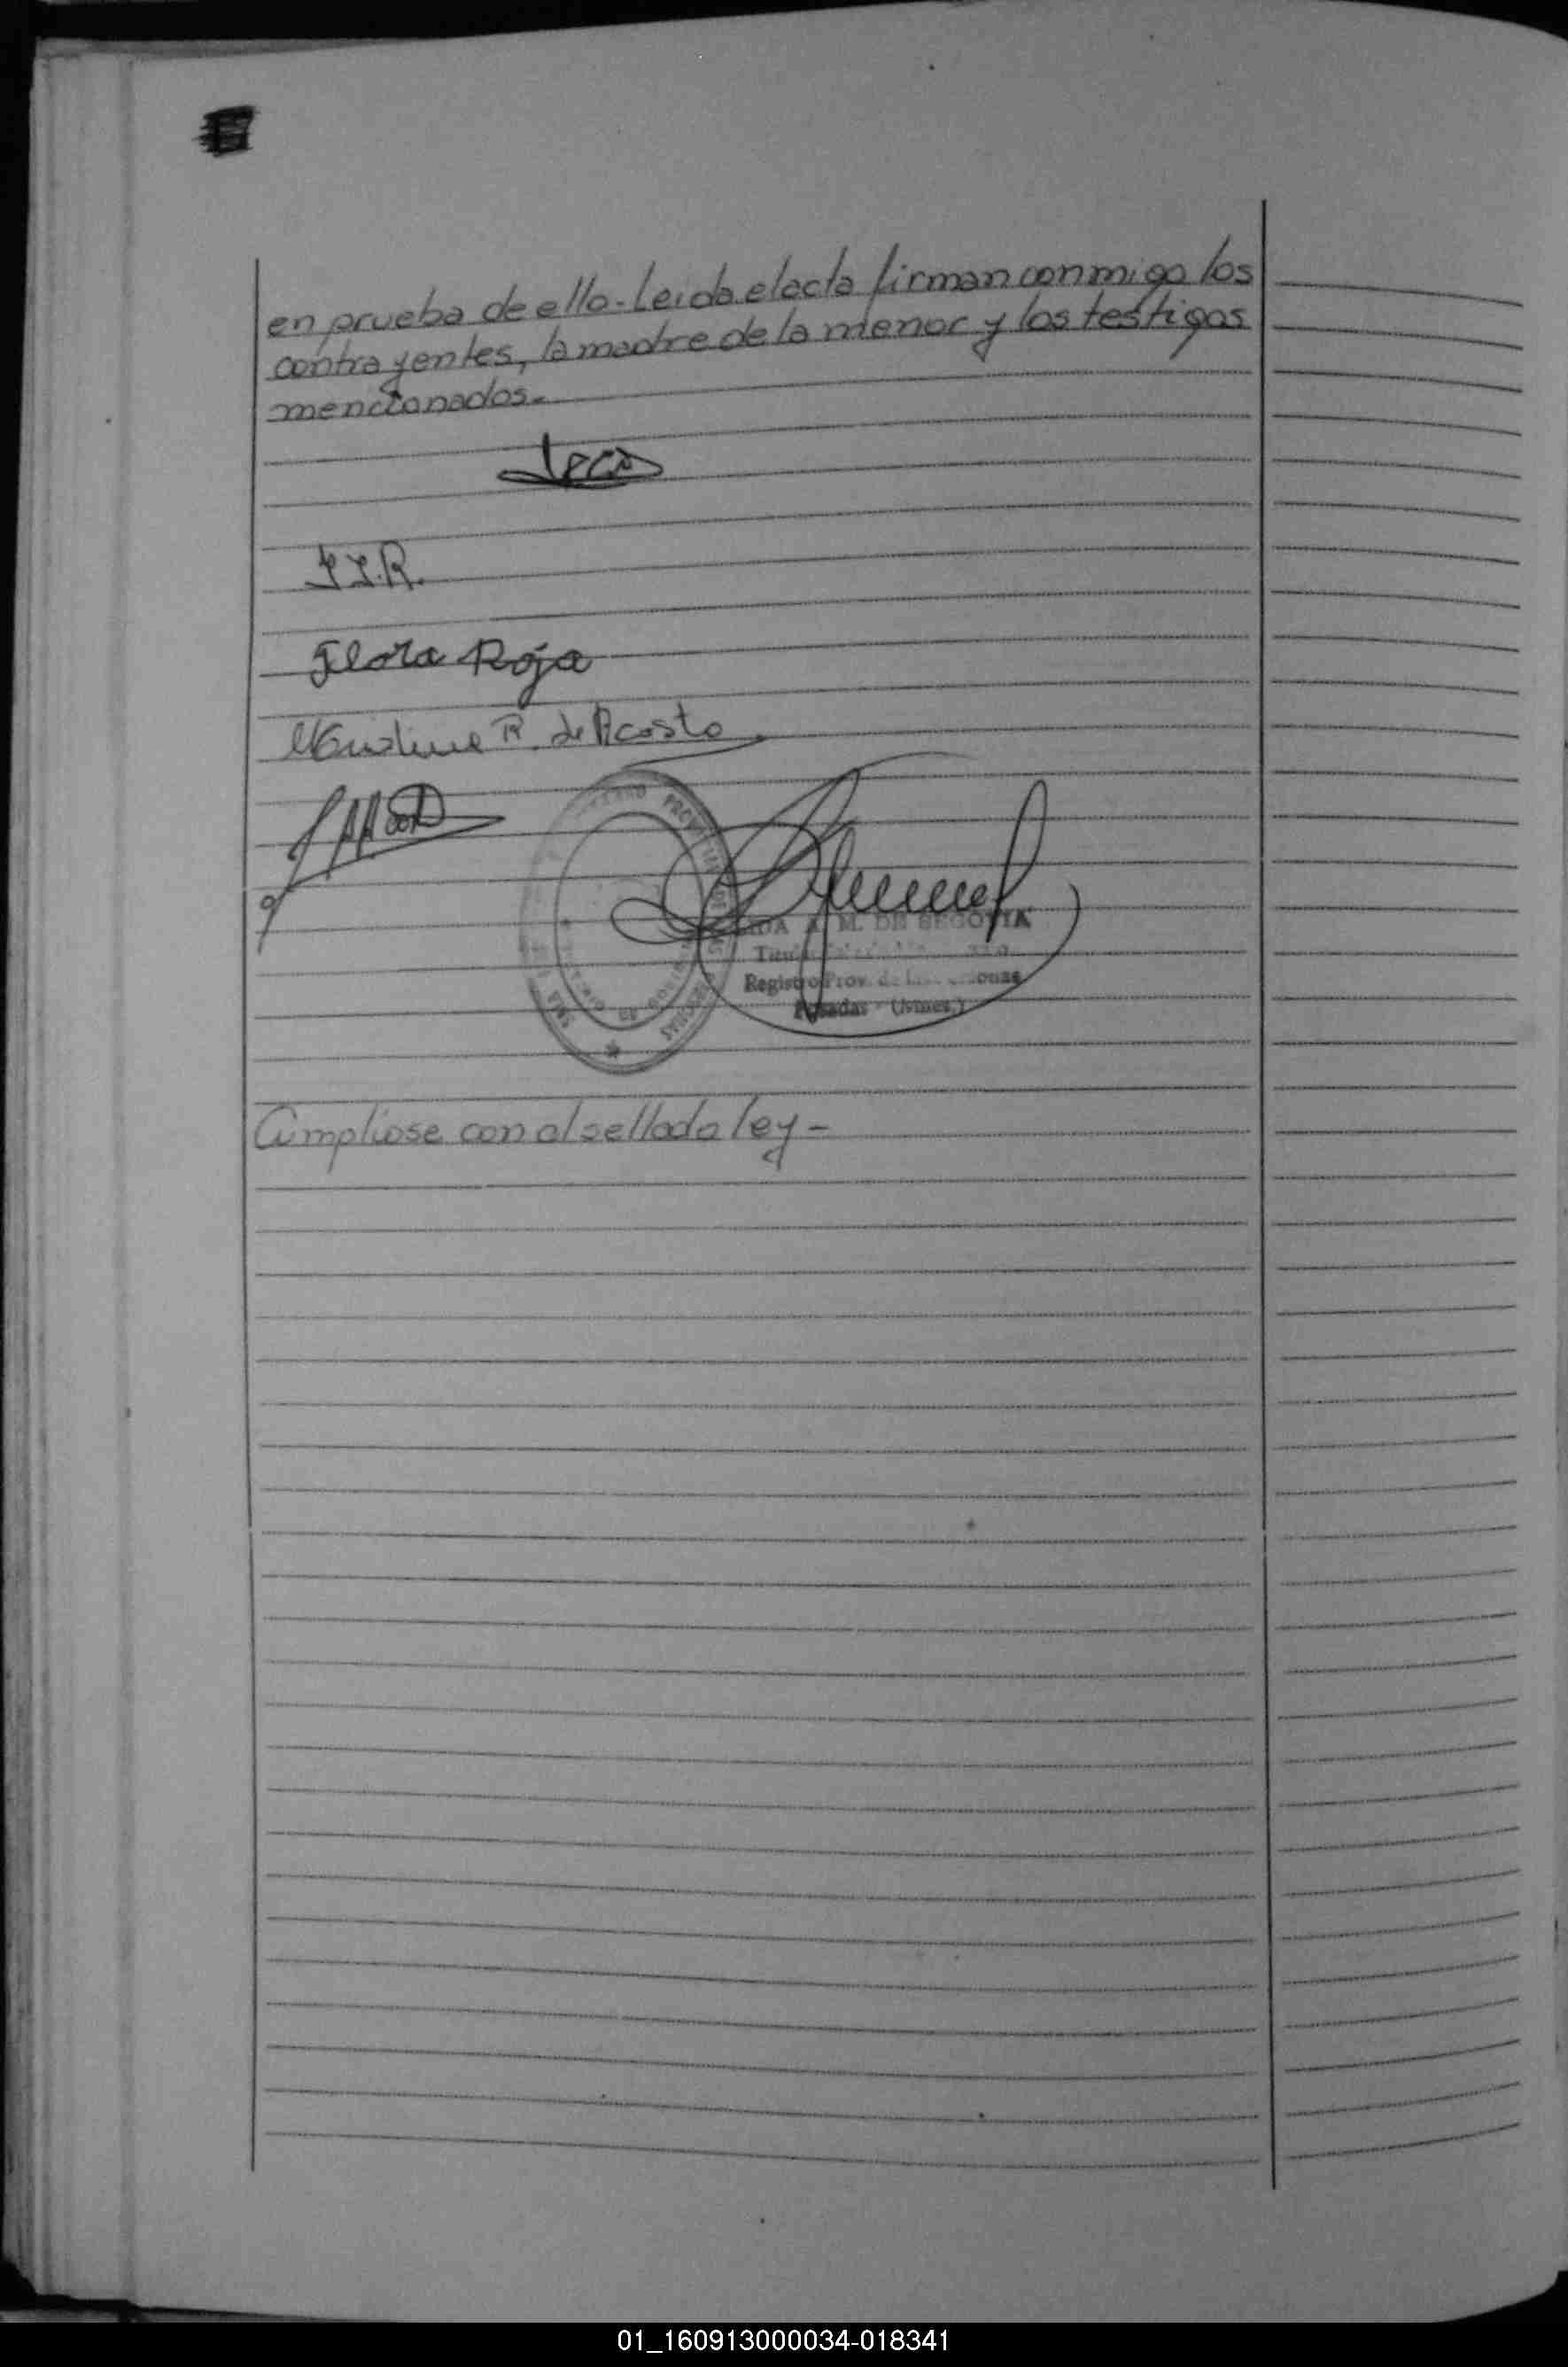 en prueba de ello-Leida el acta firman conmigo los
contrayentes, la madre de la menor y los testigos
mencionados.-
F.I.R.
Flora Roja
R. de Acosta
A. M. DE SEGOVIA
Registro Prov. de las Personas
Posadas - (Mnes.)
Cumpliose con el sellado ley-
01_160913000034-018341